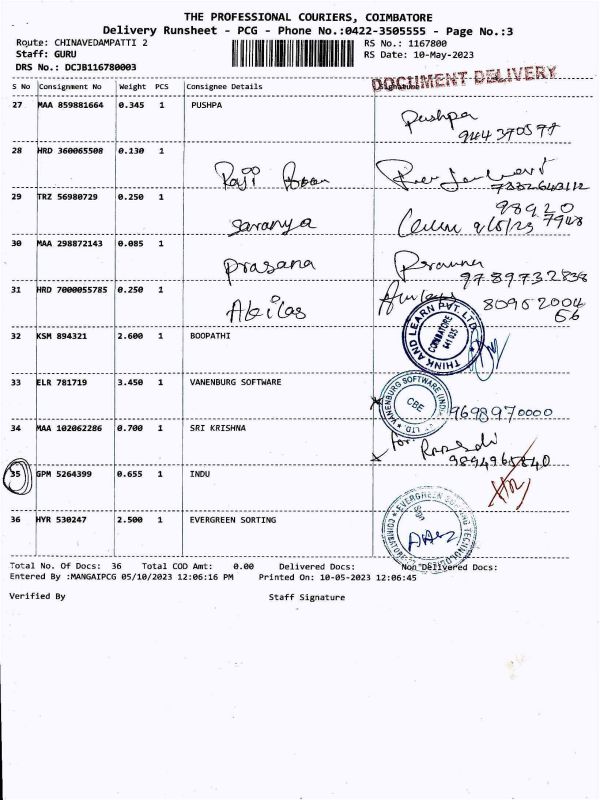 THE PROFESSIONAL COURIERS, COIMBATORE
Delivery Runsheet - PCG - Phone No.:0422-3505555 - Page No.:3
Route: CHINAVEDAMPATTI 2 RS No.: 1167800
Staff: GURU RS Date: 10-May-2023
DRS No.: DCJB116780003
DOCUMENT DELIVERY
S No Consignment No Weight PCS Consignee Details Signature
27 MAA 859881664 0.345 1 PUSHPA Pushpa
28 HRD 360065508 0.130 1
Raji
7382643112
29 TRZ 56980729 0.250 1 98920
Saranya 7948
30 MAA 298872143 0.085 1
Prasana 9789732838
31 HRD 7000055785 0.250 1 80952004
Akilas 56
32 KSM 894321 2.600 1 BOOPATHI THINK AND LEARN PVT. LTD COIMBATORE 641 035
33 ELR 781719 3.450 1 VANENBURG SOFTWARE VANENBURG SOFTWARE (INDIA) P LTD CBE
9698970000
34 MAA 102062286 0.700 1 SRI KRISHNA for
9894965840
35 GPM 5264399 0.655 1 INDU
36 HYR 530247 2.500 1 EVERGREEN SORTING EVERGREEN SORTING
Total No. Of Docs: 36 Total COD Amt: 0.00 Delivered Docs: Non Delivered Docs:
Entered By :MANGAIPCG 05/10/2023 12:06:16 PM Printed On: 10-05-2023 12:06:45
Verified By Staff Signature